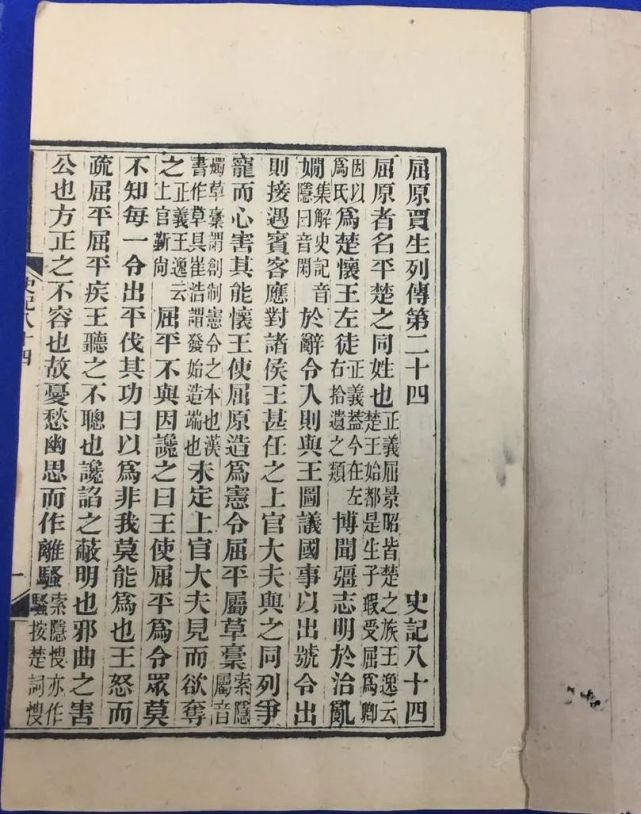 屈原賈生列傳第二十四 史記八十四
屈原者名平楚之同姓也正義屈景昭皆楚之族王逸云楚王始都是生子瑕受屈爲卿
因以爲氏爲楚懷王左徒正義葢今在左右拾遺之類博聞彊志明於治亂
嫺集解史記音隱曰音閑於辭令入則與王圖議國事以出號令出
則接遇賓客應對諸侯王甚任之上官大夫與之同列爭
寵而心害其能懷王使屈原造爲憲令屈平屬草稾索隱屬音
燭草稾謂創制憲令之本也漢書作草具崔浩謂發始造端也未定上官大夫見而欲奪
之正義王逸云上官靳尚屈平不與因讒之曰王使屈平爲令眾莫
不知每一令出平伐其功曰以爲非我莫能爲也王怒而
疏屈平屈平疾王聽之不聰也讒諂之蔽明也邪曲之害
公也方正之不容也故憂愁幽思而作離騷索隱慅亦作騷按楚詞慅
史記八十四 一